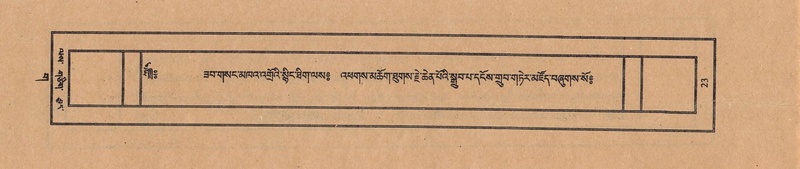 ཟབ་གསང་མཁའ་འགྲོའི་སྙིང་ཐིག་ལས༔ འཕགས་མཆོག་ཐུགས་རྗེ་ཆེན་པོའི་སྒྲུབ་པ་དངོས་གྲུབ་གཏེར་མཛོད་བཞུགས་སོ༔
23